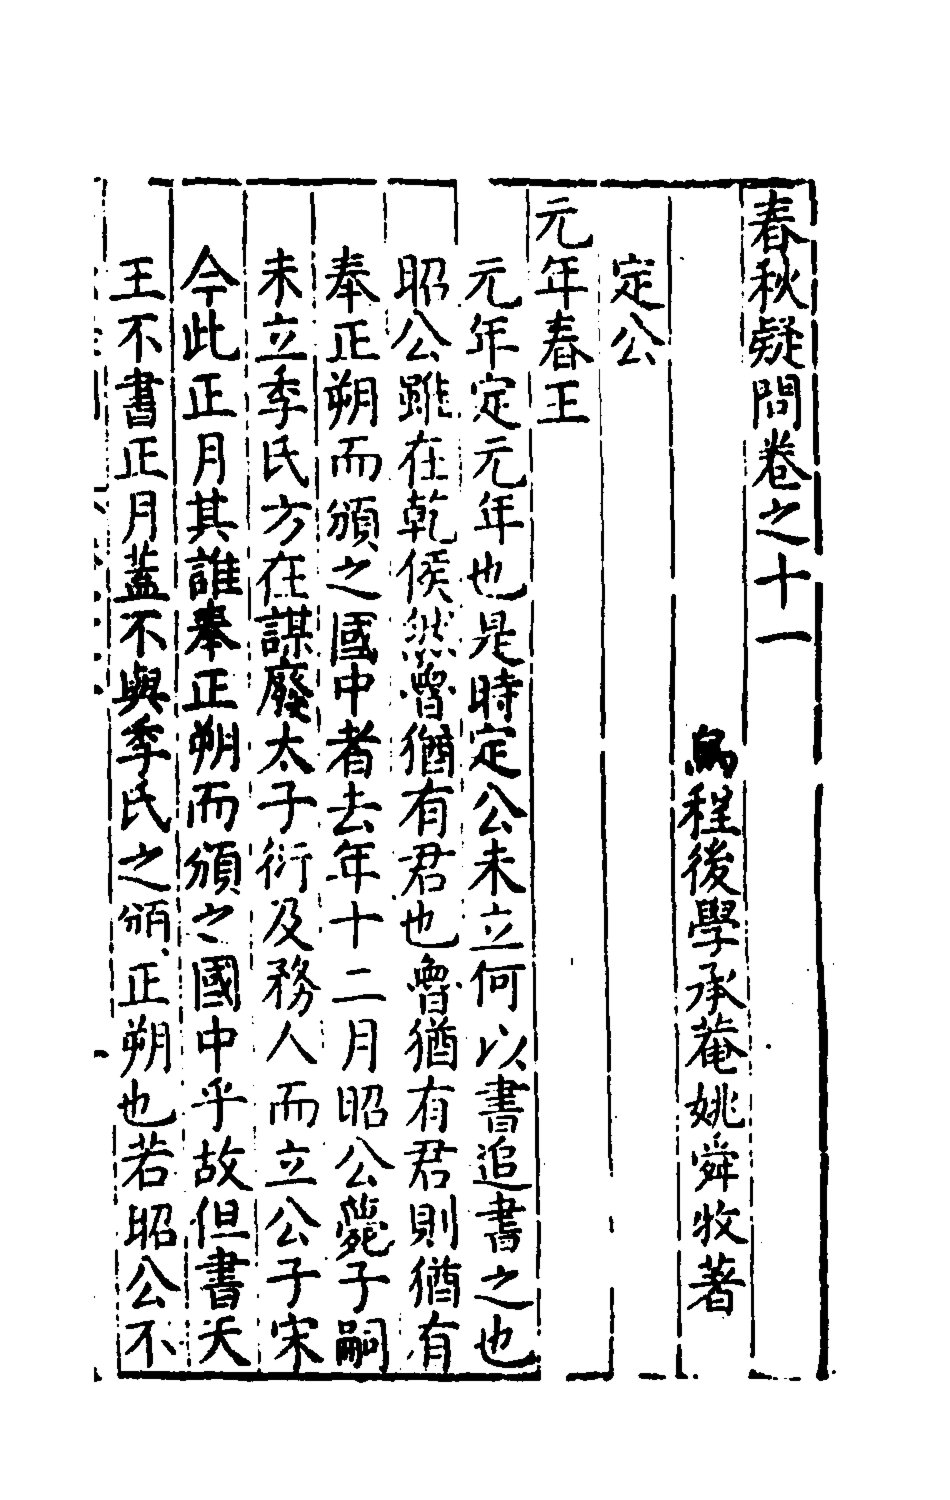 春秋疑問卷之十一
烏程後學承菴姚舜牧著
定公
元年春王
元年定元年也是時定公未立何以書追書之也
昭公雖在乾侯然魯猶有君也魯猶有君則猶有
奉正朔而頒之國中者去年十二月昭公薨子嗣
未立季氏方在謀廢太子衍及務人而立公子宋
今此正月其誰奉正朔而頒之國中乎故但書天
王不書正月蓋不與季氏之頒正朔也若昭公不